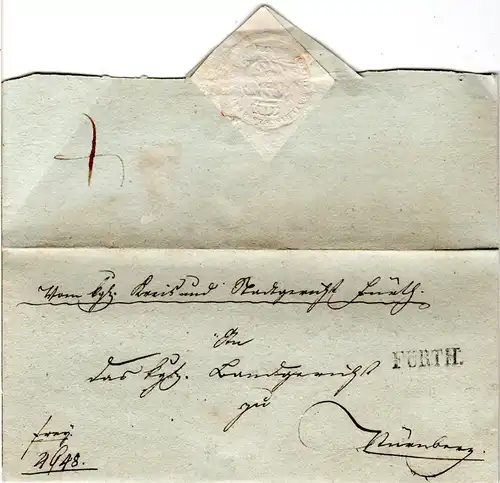 Vom kgl. Kreis und Stadtgericht Fürth.
An
das kgl. Landgericht
FÜRTH.
zu
Nürnberg.
frey.